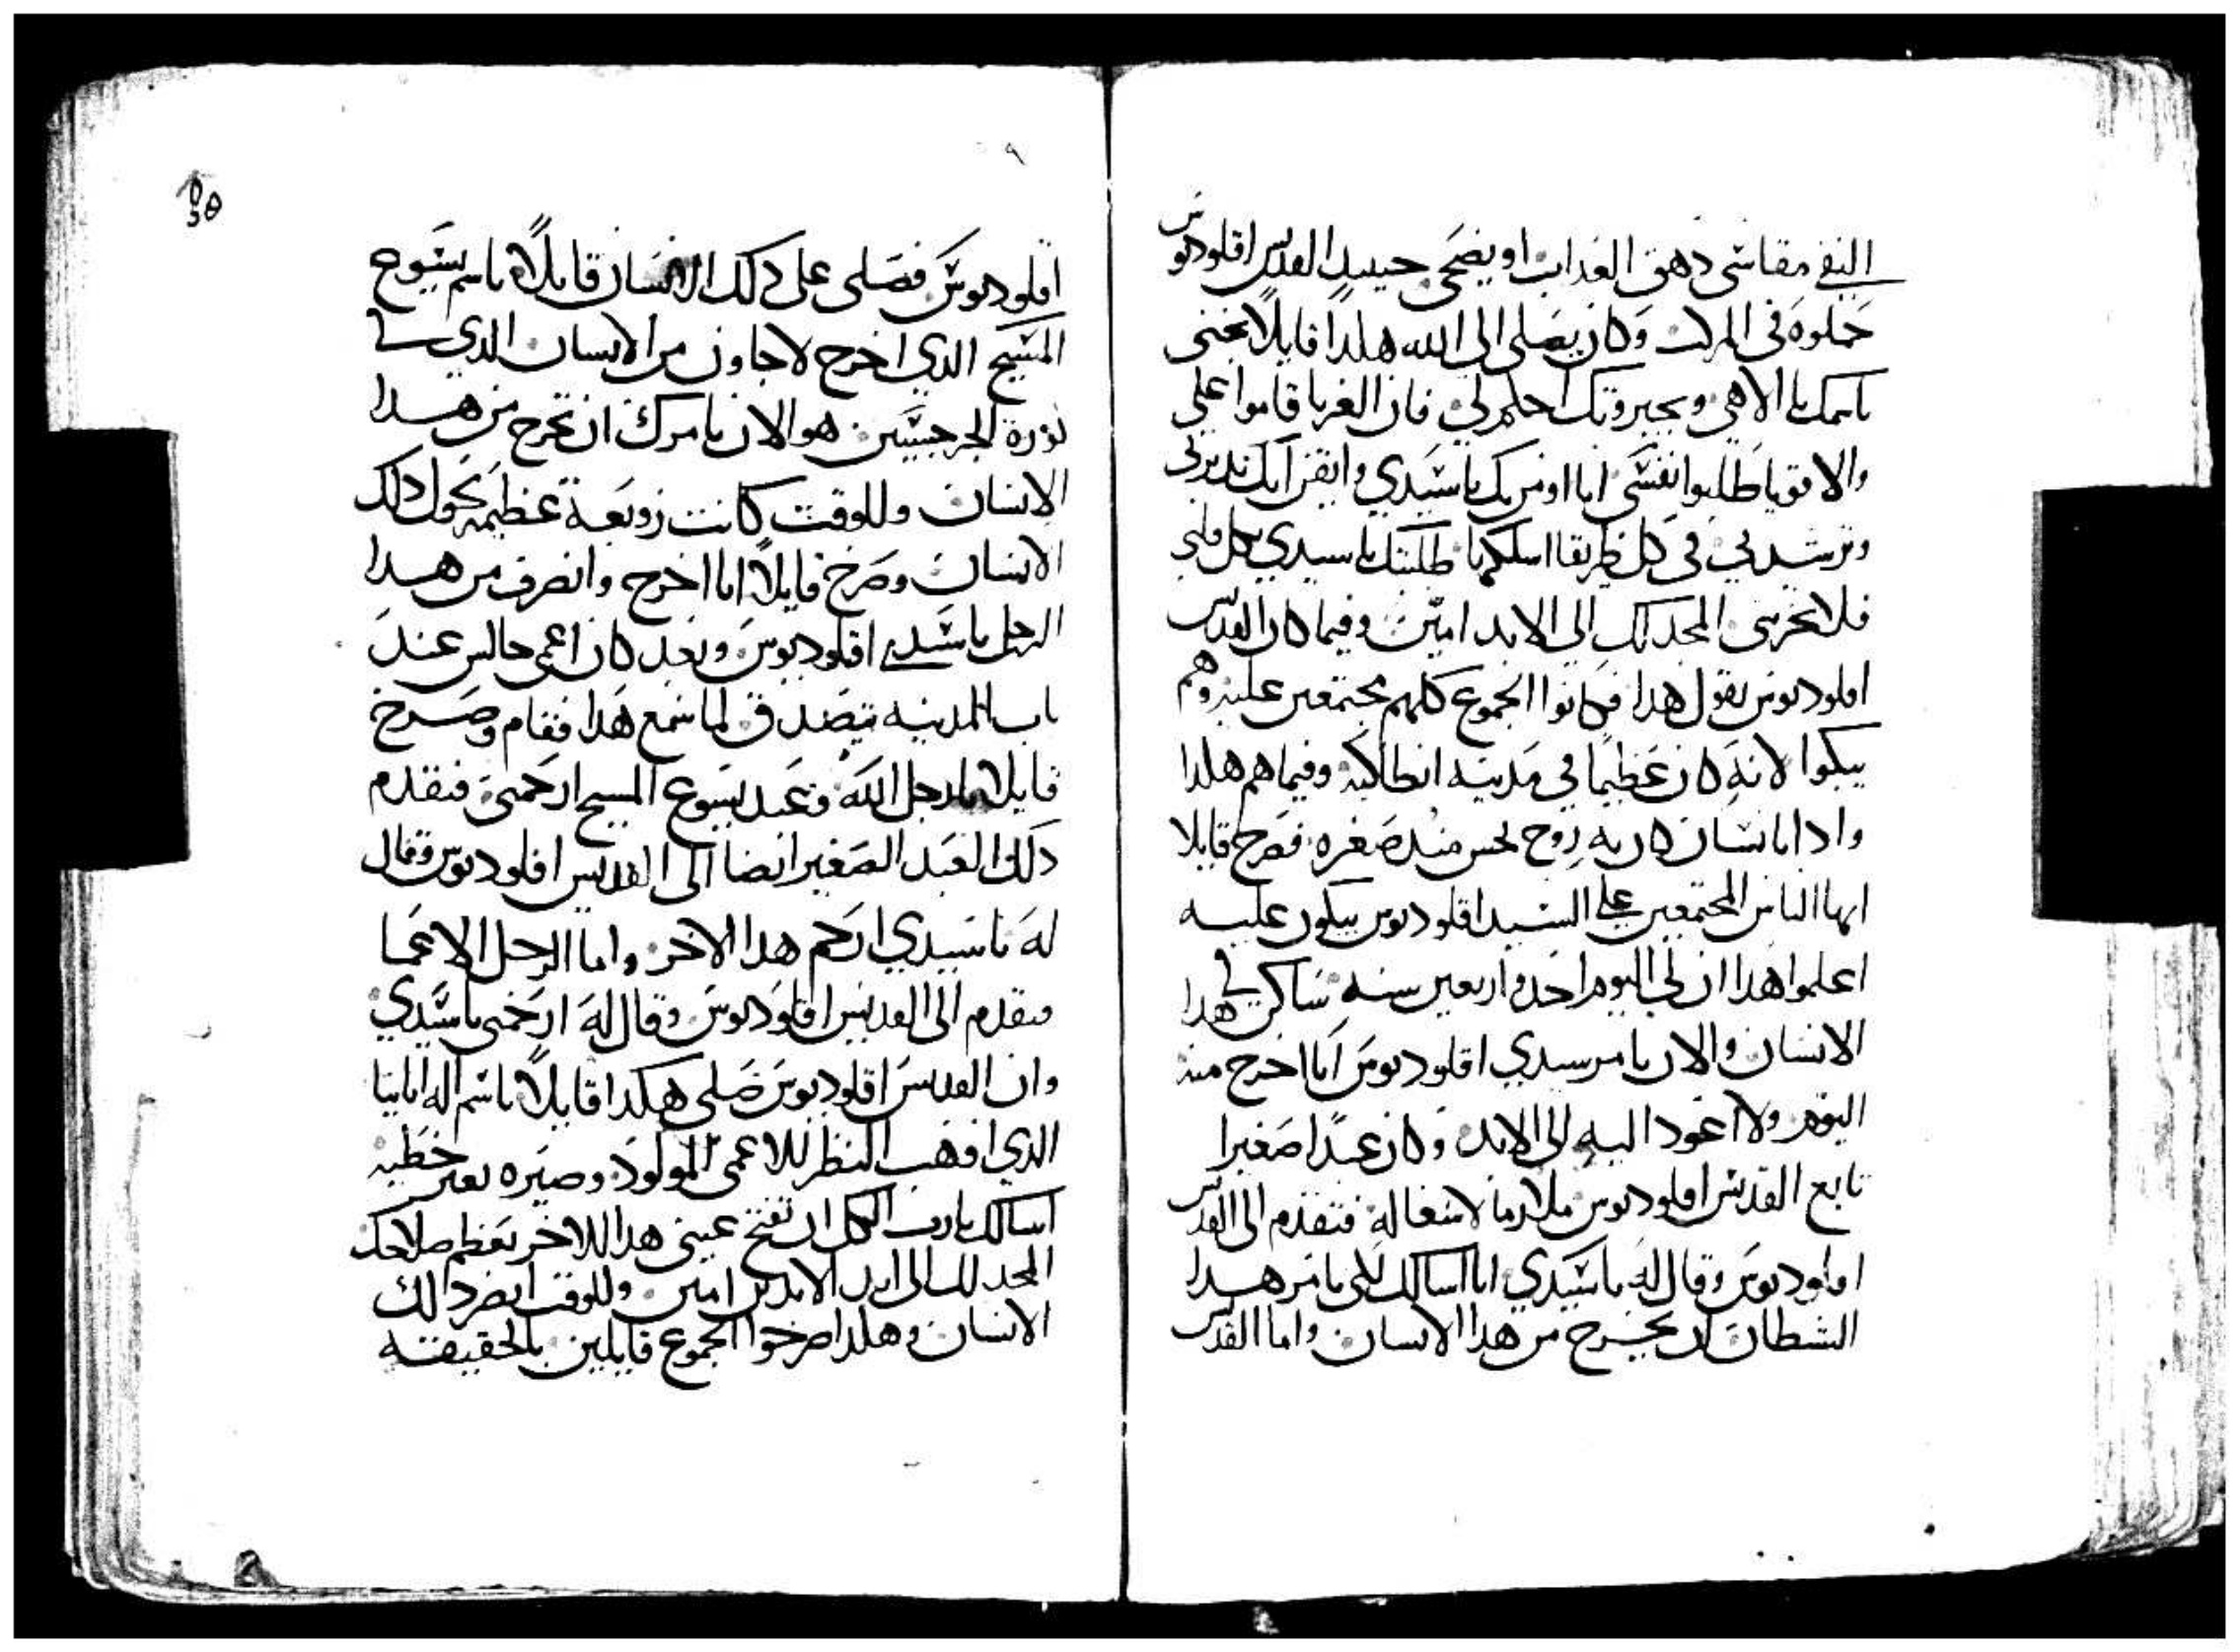 النفي مقاسي دهق العداب او يضحي حينيد القديس اقلوديوس
حملوه في المركب وكان يصلي الي الله هكدا قايلا نجني
باسمك يا الاهي وبجبروتك احكم لي فان الغربا قاموا علي
والاقويا طلبوا نفسي انا اومن بك يا سيدي وايقن انك تدبرني
وترشدني في كل طريقا اسلكها طلبتك يا سيدي بكل قلبي
فلا تخزيني المجد لك الي الابد امين وفيما كان القديس
اقلوديوس يقول هدا فكانوا الجموع كلهم مجتمعين عليه وهم
يبكوا لانه كان عظيما في مدينه انطاكيه وفيما هم هكدا
وادا بانسان كان به روح نجس مند صغره فصرخ قايلا
ايها الناس المجتمعين علي السيد اقلوديوس يبكون عليه
اعلموا هدا ان لي اليوم احد واربعين سنه ساكن في هدا
الانسان والان يامر سيدي اقلوديوس انا اخرج منه
اليوم ولا اعود اليه الي الابد وكان عبدا صغيرا
تابع القديس اقلوديوس ملازما لاشغاله فتقدم الي القديس
اقلوديوس وقال له يا سيدي انا اسالك لكي تامر هدا
الشيطان ان يخرج من هدا الانسان واما القديس
اقلوديوس فصلي علي دلك الانسان قايلا باسم يسوع
المسيح الدي اخرج لاجاون من الانسان الدي في
كورة الجرجسيين هو الان يامرك ان تخرج من هدا
الانسان وللوقت كانت زوبعة عظيمه حول دلك
الانسان وصرخ قايلا انا اخرج وانصرف من هدا
الرجل يا سيدي اقلوديوس وبعد كان اعمي جالس عند
باب المدينه يتصدق لما سمع هدا فقام وصرخ
قايلا يا رجل الله وعبد يسوع المسيح ارحمني فتقدم
دلك العبد الصغير ايضا الي القديس اقلوديوس وقال
له يا سيدي ارحم هدا الاخر واما الرجل الاعما
فتقدم الي القديس اقلوديوس وقال له ارحمني يا سيدي
وان القديس اقلوديوس صلي هكدا قايلا باسم اله ابايا
الدي اوهب النظر للاعمي المولود وصيره بغير خطيه
اسالك يا رب الكل ان تفتح عيني هدا الاخر بعظم صلاحك
المجد لك الي ابد الابدين امين وللوقت ابصر دالك
الانسان وهكدا صرخوا الجموع قايلين بالحقيقه